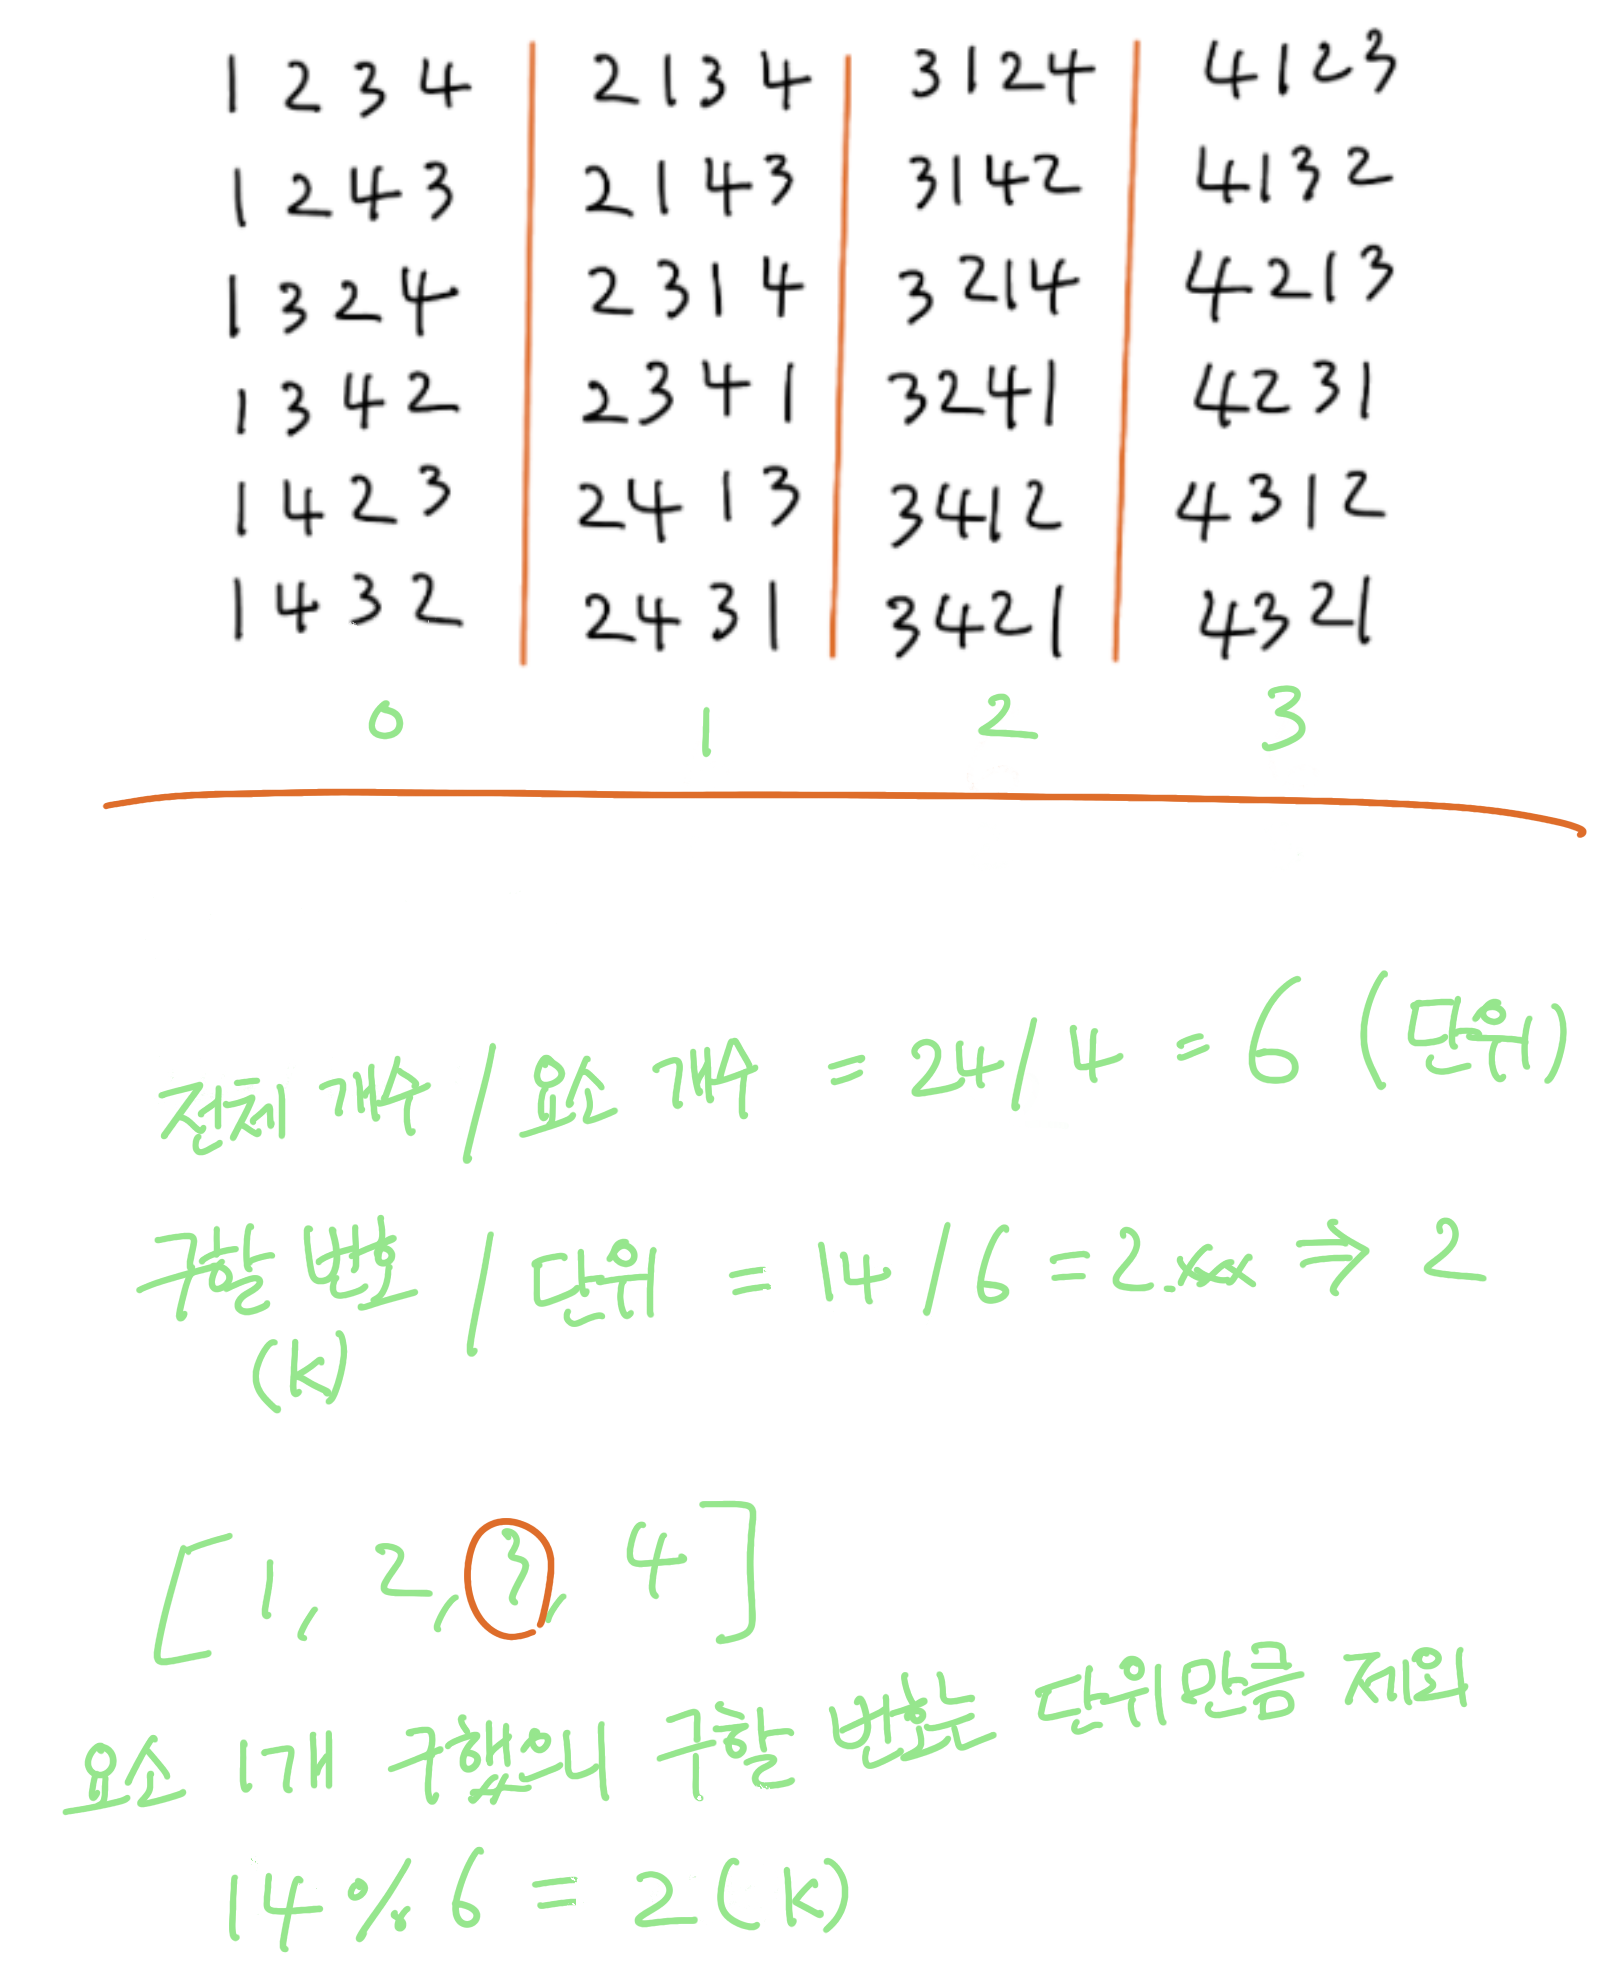 1 2 3 4 2 1 3 4 3 1 2 4 4 1 2 3
1 2 4 3 2 1 4 3 3 1 4 2 4 1 3 2
1 3 2 4 2 3 1 4 3 2 1 4 4 2 1 3
1 3 4 2 2 3 4 1 3 2 4 1 4 2 3 1
1 4 2 3 2 4 1 3 3 4 1 2 4 3 1 2
1 4 3 2 2 4 3 1 3 4 2 1 4 3 2 1
0 1 2 3
전체 개수 / 요소 개수 = 24 / 4 = 6 (단위)
구할 번호 / 단위 = 14 / 6 = 2.xxx ⇒ 2
(k)
[1, 2, 3, 4]
요소 1개 구했으니 구할 번호는 단위만큼 제외
14 % 6 = 2 (k)